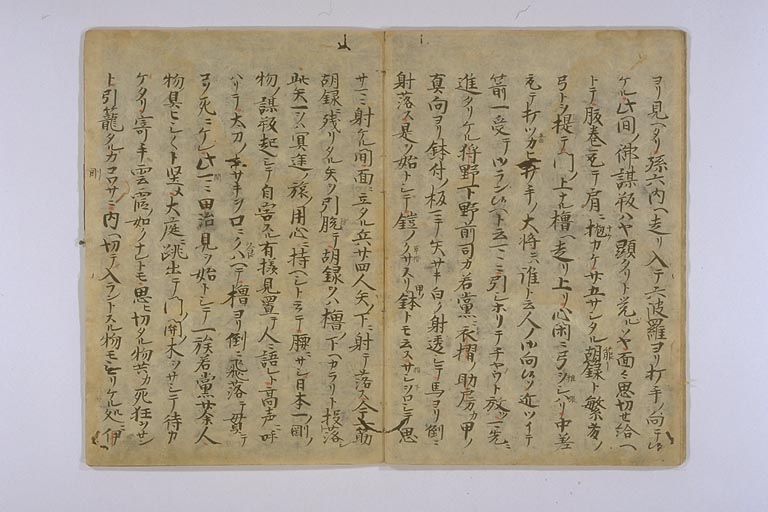 ヨリ見ヘタリ孫六内ヘ走リ入テ六波羅ヨリ打手ノ向テ候
ケル此間ノ御謀叛ハヤ顕タリト覚ルソヤ面々思切セ給ヘ
トテ腹巻取テ肩ニ抛カケサカサシタル胡録ト繁藤ノ
弓トヲ提テ門ノ上ナル櫓ヘ走リ上リ心閑ニ弓ヲシハリ中差
取テ打ツカヒ打手ノ大将ハ誰ト云人ノ向ソ近ツイテ
箭一受テコランシ候ヘト云ニ引シホリテチヤウト放ツ一先ニ
進タリケル狩野下野前司カ若黨ニ衣摺ノ助房カ甲ノ
真向ヨリ鉢付ノ板マテ矢サキ白ク射透シテ馬ヨリ倒ニ
射落ス是ヲ始トシテ鎧ノ サスリ鉢トモ云ス サシツロシテ思
サマニ射ケル間面ニ立タル兵廿四人矢ノ下ニ射テ落ス今一筋
胡録ニ残リタル矢ヲ引脱テ胡録ヲハ櫓ノ下ヘカラリト投落シ
此矢一ヲハ冥途ノ旅ノ用心ニ持ヘシト云テ腰ニサシ日本一ノ剛ノ
物ノ謀叛起シテ自害スル有様見置テ人ニ語レト高声ニ呼
ハリテ太刀ノサキヲ口ニクハヘテ櫓ヨリ倒ニ飛落テ貫テ
コソ死ニケレ此間ニ田治見ヲ始トシテ一族若黨廿余人
物具ヒシヒシト堅メ大庭ニ跳出テ門ノ関木ヲサシテ待カ
ケタリ寄手雲霞如ノナレトモ思切タル物共カ死狂ヲセン
ト引籠タルカコワサニ内ヘ切テ入ラントスル物モ無リケル処ニ伊
剛